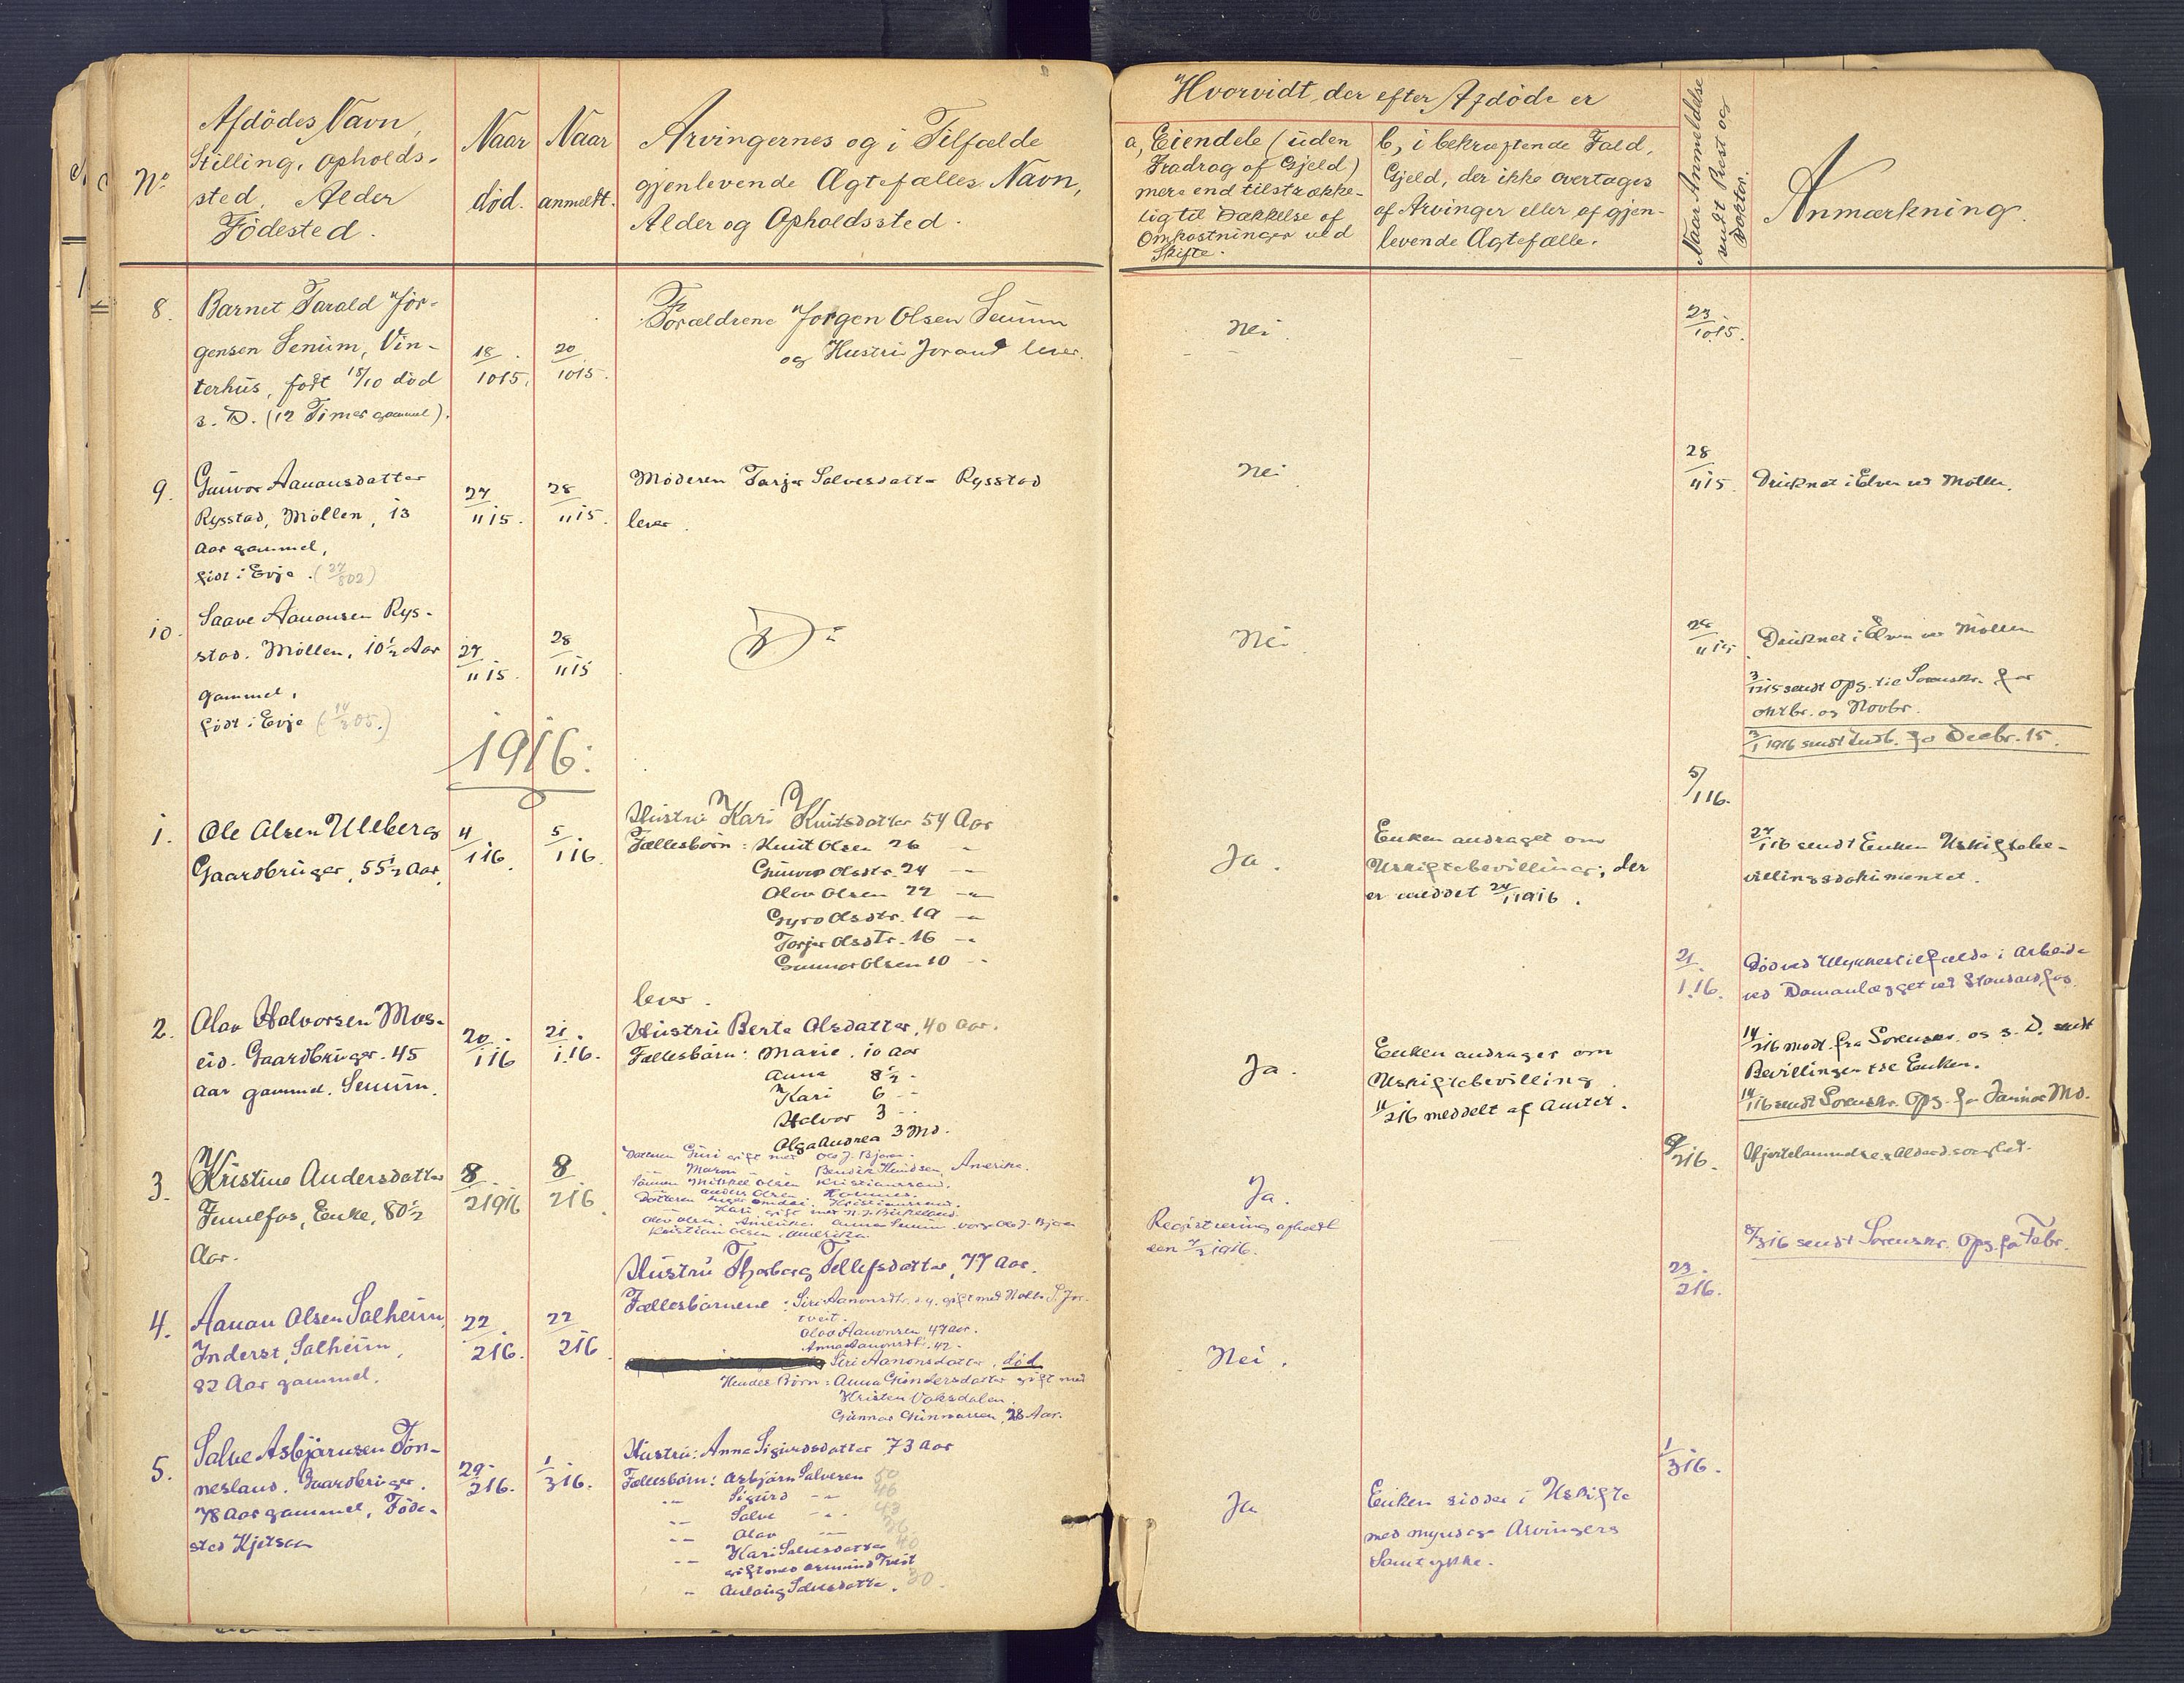 No
Afdödes Navn,
Stilling, Opholds-
sted, Alder
Födested.
Naar
död.
Naar
anmeldt.
Arvingernes og i Tilfælde
gjenlevende Ægtefælles Navn,
Alder og Opholdssted.
Hvorvidt der efter Afdöde er
a, Eiendele (uden
Fradrag af Gjeld)
mere end tilstrække-
lig til Dækkelse af
Omkostninger ved
Skifte.
b, i bekræftende Fald,
Gjeld, der ikke overtages
af Arvinger eller af gjen-
levende Ægtefælle.
Naar Anmeldelse
sendt Prest og
Doktor.
Anmærkning.
8.
Barnet Tarald Jör-
gensen Senum, Vin-
terhus, födt 18/10 död
s. D. (12 Timer gammel).
18/10 15.
20/10 15.
Forældrene Jorgen Olsen Senum
og Hustru Jorand lever.
Nei.
23/10 15.
9.
Gunvor Aanonsdatter
Rysstad, Möllen, 13
Aar gammel,
födt i Evje. (27/8 02)
27/11 15.
28/11 15.
Moderen Tarjer Salvesdatter Rysstad
lever.
Nei.
28/11 15.
Druknet i Elven ved Möllen.
10.
Saave Aanonsen Rys-
stad. Möllen, 10½ Aar
gammel,
födt i Evje (14/3 05.)
27/11 15.
28/11 15
Do
Nei.
28/11 15
Druknet i Elven ved Möllen
3/12 15 sendt Opg. til Sorenskr. for
oktbr. og Novbr.
3/1 1916 sendt Indb. for Decbr. 15.
1916:
1.
Ole Olsen Uleberg
Gaardbruger, 55½ Aar
4/1 16.
5/1 16.
Hustru Kari Knutsdatter 54 Aar
Fællesbörn: Knut Olsen 26 "
Gunvor Olsdtr. 24 "
Olav Olsen 22 "
Gyro Olsdtr. 19 "
Torjer Olsdtr. 16 "
Gunnar Olsen 10 "
lever.
Ja.
Enken andraget om
Uskiftebevilling; der
er meddelt 24/1 1916.
5/1 16.
27/1 16 sendt Enken Uskiftebe-
villingsdokumentet.
2.
Olav Halvorsen Mos-
eid. Gaardbruger. 45
Aar gammel. Senum.
20/1 16
21/1 16.
Hustru Berte Olsdatter, 40 Aar.
Fællesbörn: Marie. 10 Aar
Anna 8½ "
Kari 6 "
Halvor 3 "
Olga Andrea 3 Md.
Ja.
Enken andrager om
Uskiftebevilling.
11/2 16 meddelt af Amtet.
21/1 16.
Död ved Ulykkestilfælde i Arbeide
ved Damanlægget ved
14/2 16 modt. fra Sorenskr. og s. D. sendt
Bevillingen til Enken.
sendt Sorenskr. Opg. for Januar Md.
3.
Kristine Andersdatter
Enke, 80½
Aar.
8/2 1916
8/2 16.
Datteren Guri gift med Ole J. Bjoren.
" Maren " " Bendik Knudsen, Amerika.
Sönnen Mikkel Olsen Kristianssand.
" Anders Olsen
Datteren
" Kari gift med N. J. Birkeland.
Olav Olsen, Amerika. Anna Senum
Kristian Olsen, Amerika.
Ja.
Registrering afholdt
den 1916.
9/2 16.
Hjertelammelse, Alderdomssvaghed.
8/3 16 sendt Sorenskr. Opg. for Febr.
4.
Aanon Olsen Solheim,
Inderst, Solheim,
82 Aar gammel.
22/2 16.
22/2 16
Hustru Thorborg Tellefsdatter, 77 Aar.
Fællesbörnene: Siri Aanonsdtr. gift med
Olav Aanonsen, 47 Aar.
Anna Aanonsdtr. 42.
Siri Aanonsdatter, död
Hendes Börn: Anna Gundersdatter gift med
Kristen Vaksdalen.
Gunnar Gunnarsen, 28 Aar.
Nei.
23/2 16.
5.
Salve Asbjörnsen Tön-
nesland. Gaardbruger.
78 Aar gammel, Föde-
sted Hjetsaa
29/2 16.
1/3 16.
Hustru: Anna Sigurdsdatter 73 Aar
Fællesbörn: Asbjörn Salvesen 50
" Sigurd " 46
" Salve " 43
" Olav " 36
" Kari Salvesdatter 40
gift med Tveit
" Salvesdatter. 30.
Ja
Enken sidder i Uskifte
med myndige Arvingers
Samtykke.
1/3 16.